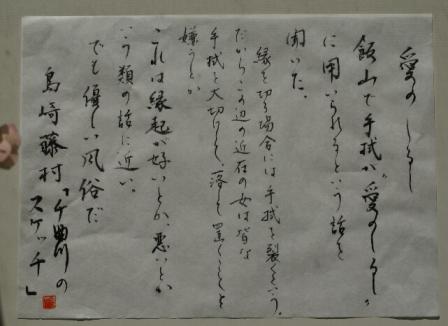 愛のしるし
飯山で手拭が"愛のしるし"
に用いられるという話を
聞いた。
縁を切る場合には手拭を裂くという。
だからこの辺の近在の女は皆な
手拭を大切にして、落して置くことを
嫌うとか
これは縁起が好いとか、悪いとか
いう類の話に近い。
でも優しい風俗だ
島崎藤村「千曲川の
スケッチ」